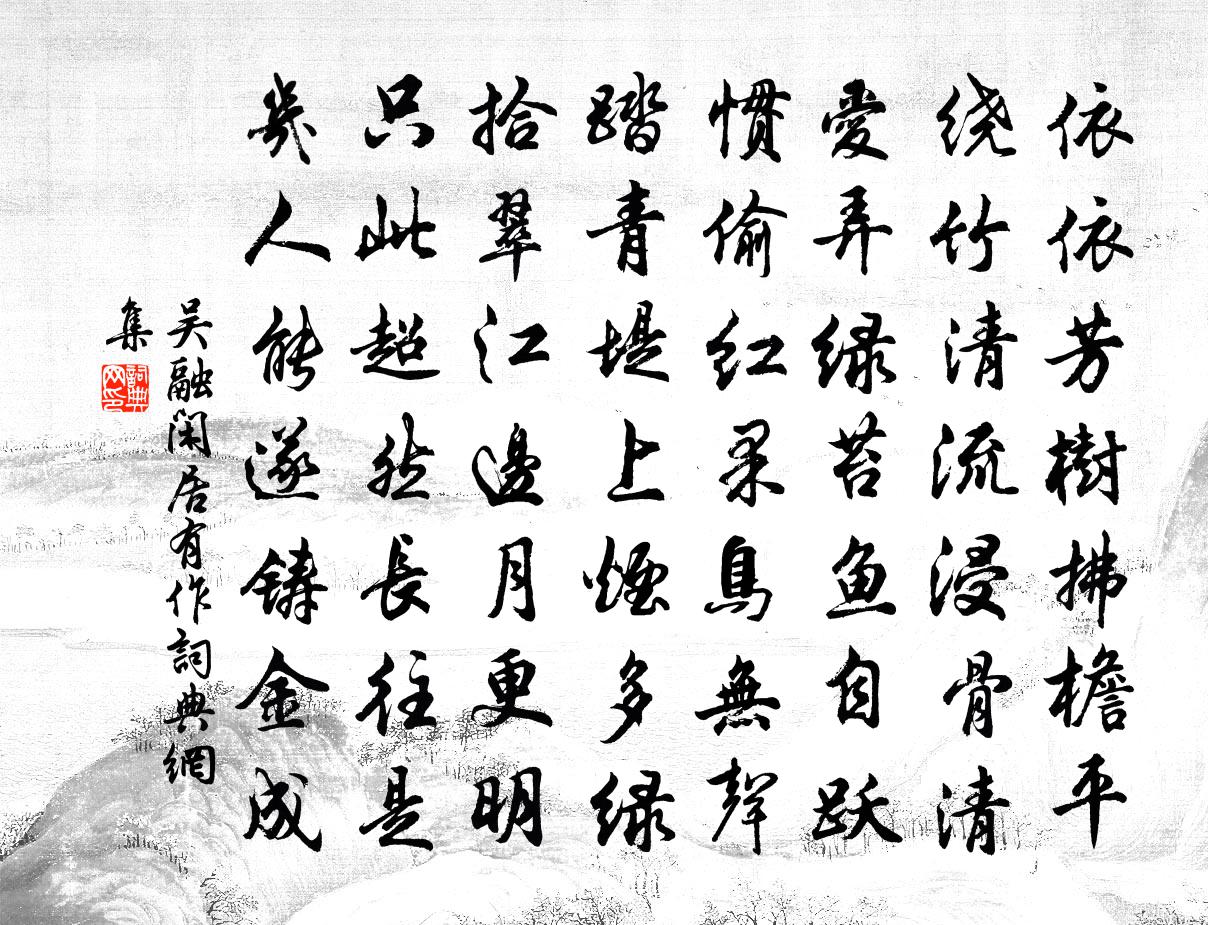 依依芳樹拂檐平
绕竹清流浸骨清
愛弄绿苔魚自跃
惯偷红果鳥無聲
踏青堤上煙多绿
拾翠江邊月更明
只此超然長往是
幾人能遂鑄金成
吴融闲居有作詞典網
集
詞典
网印